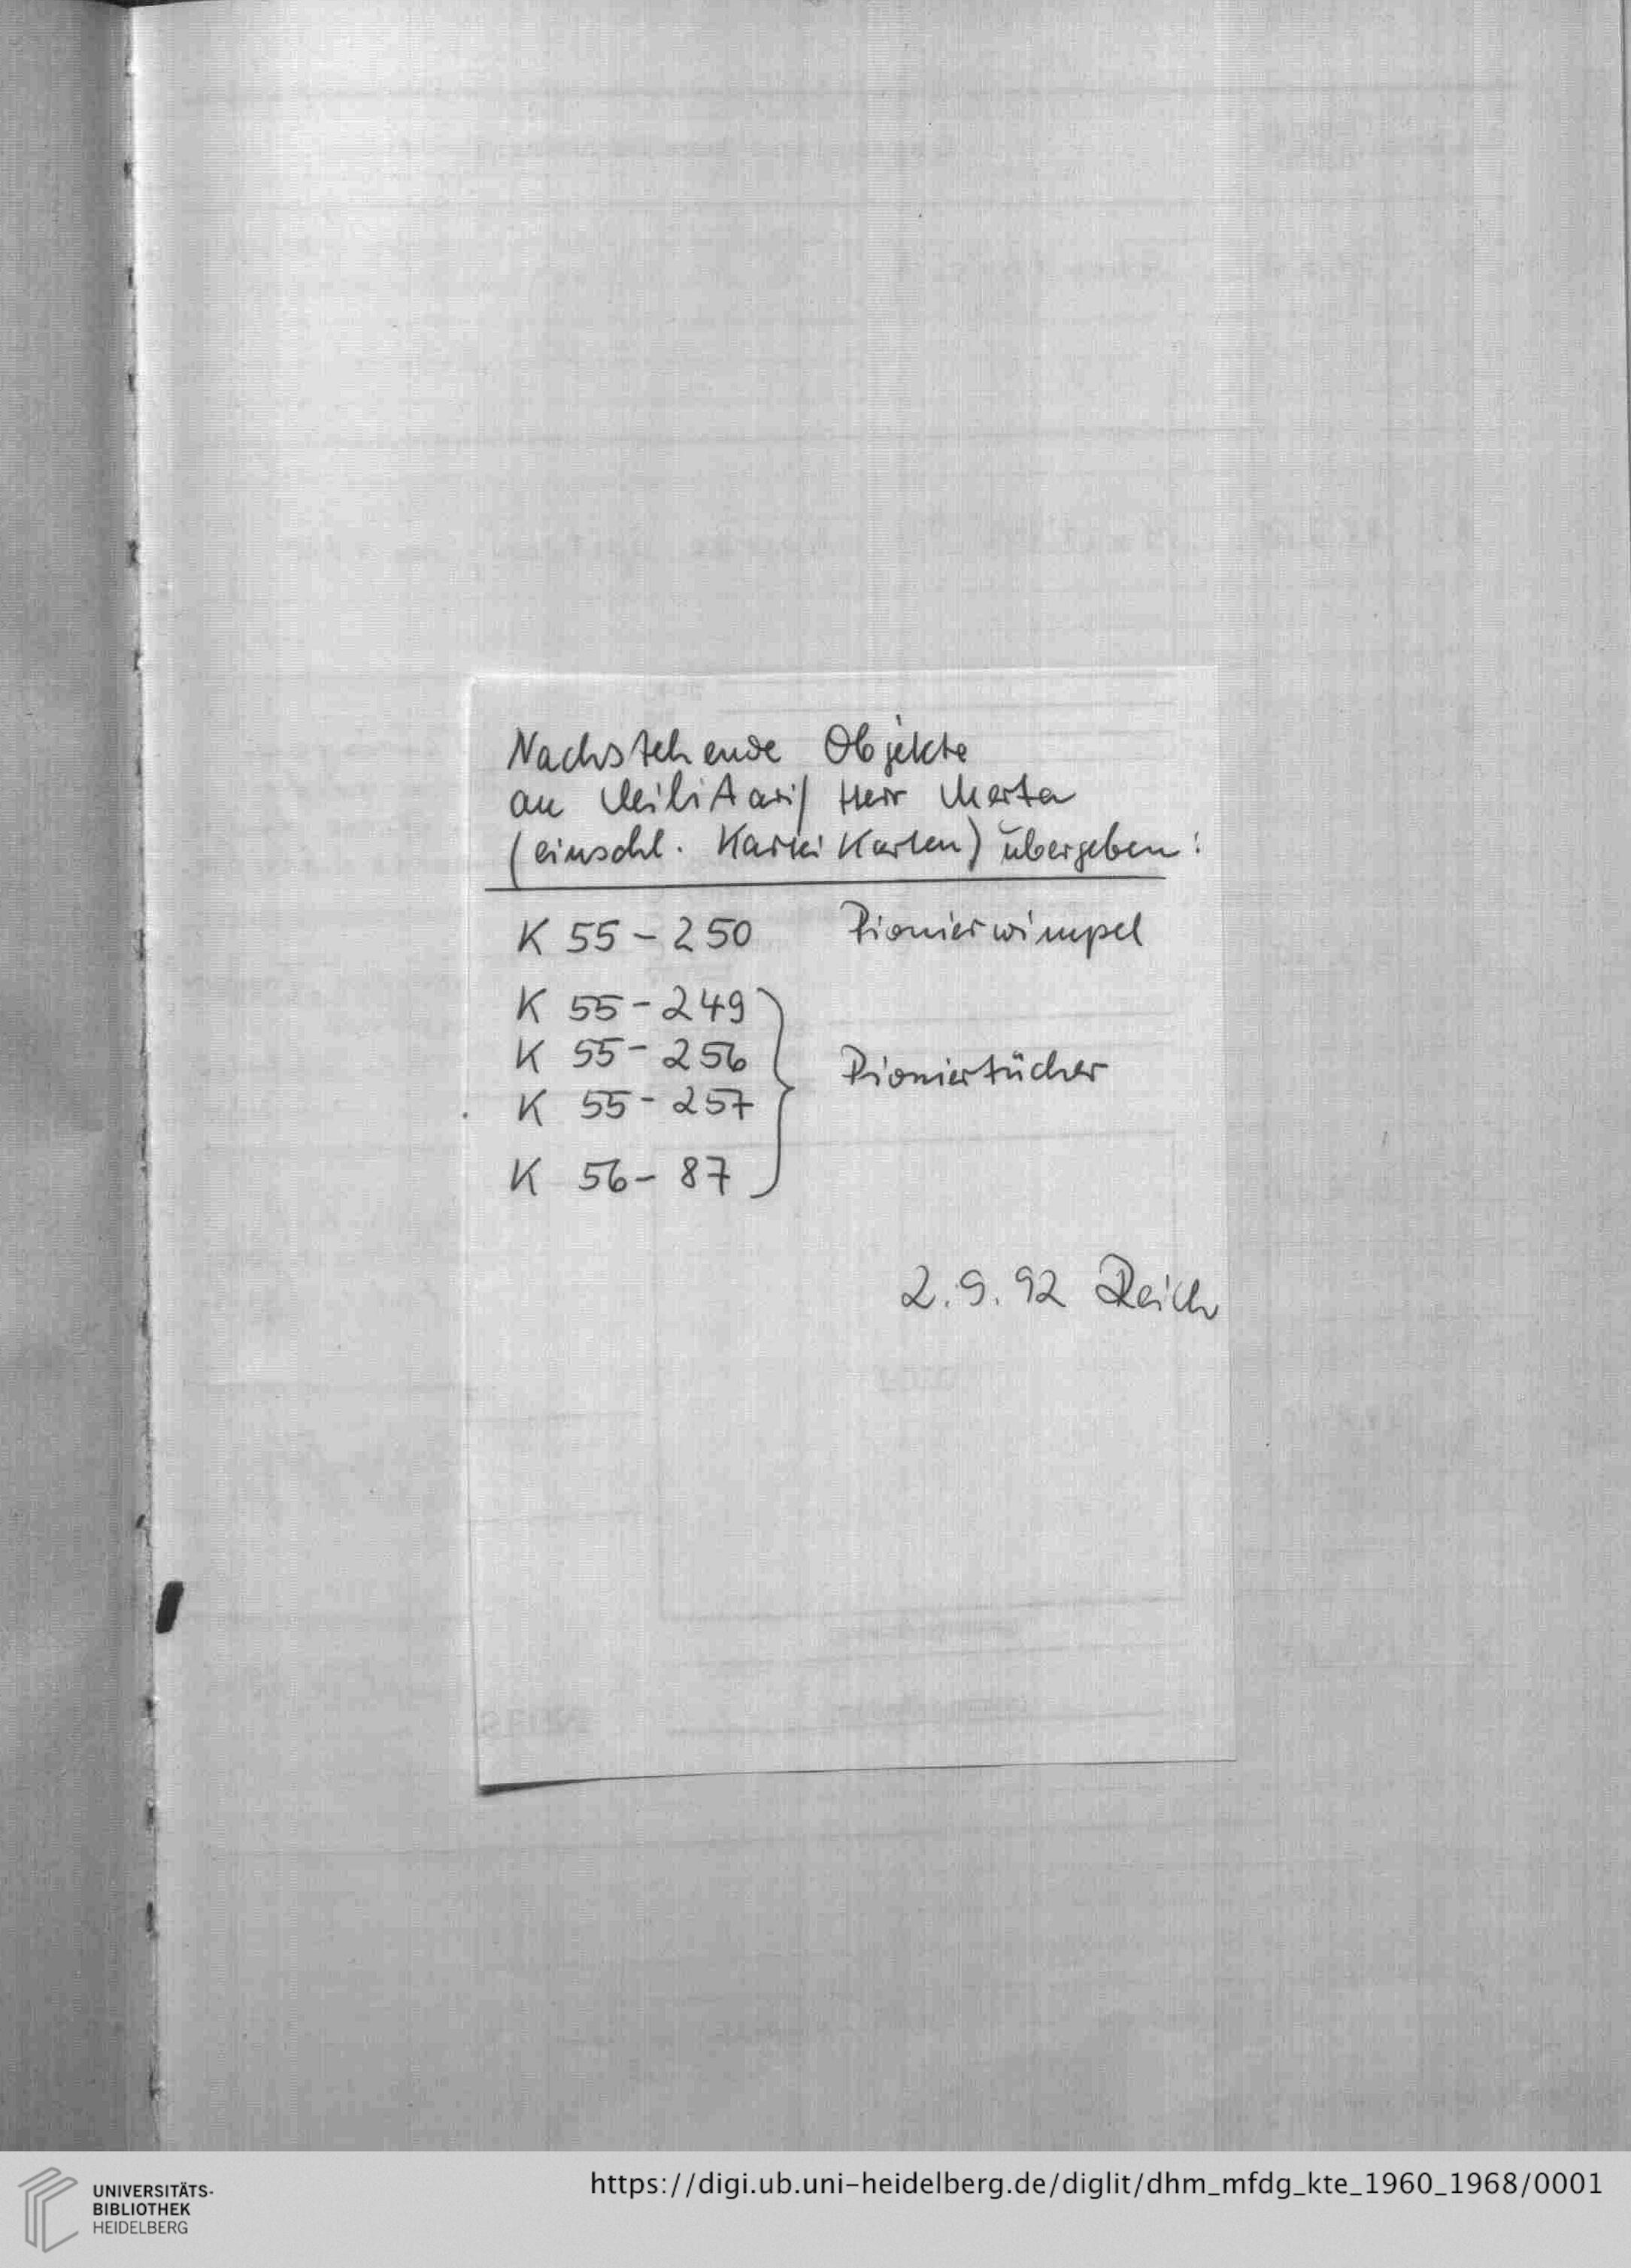 Nachstehende Objekte
an Militaria/ Herr Merta
(einschl. Kartei Karten) übergeben:
K 55-250 Pionierwimpel
K 55-249
K 55-256
K 55-257
K 56-87
Pioniertücher
2.9.92 Reich
UNIVERSITÄTS-
BIBLIOTHEK
HEIDELBERG
https://digi.ub.uni-heidelberg.de/diglit/dhm_mfdg_kte_1960_1968/0001